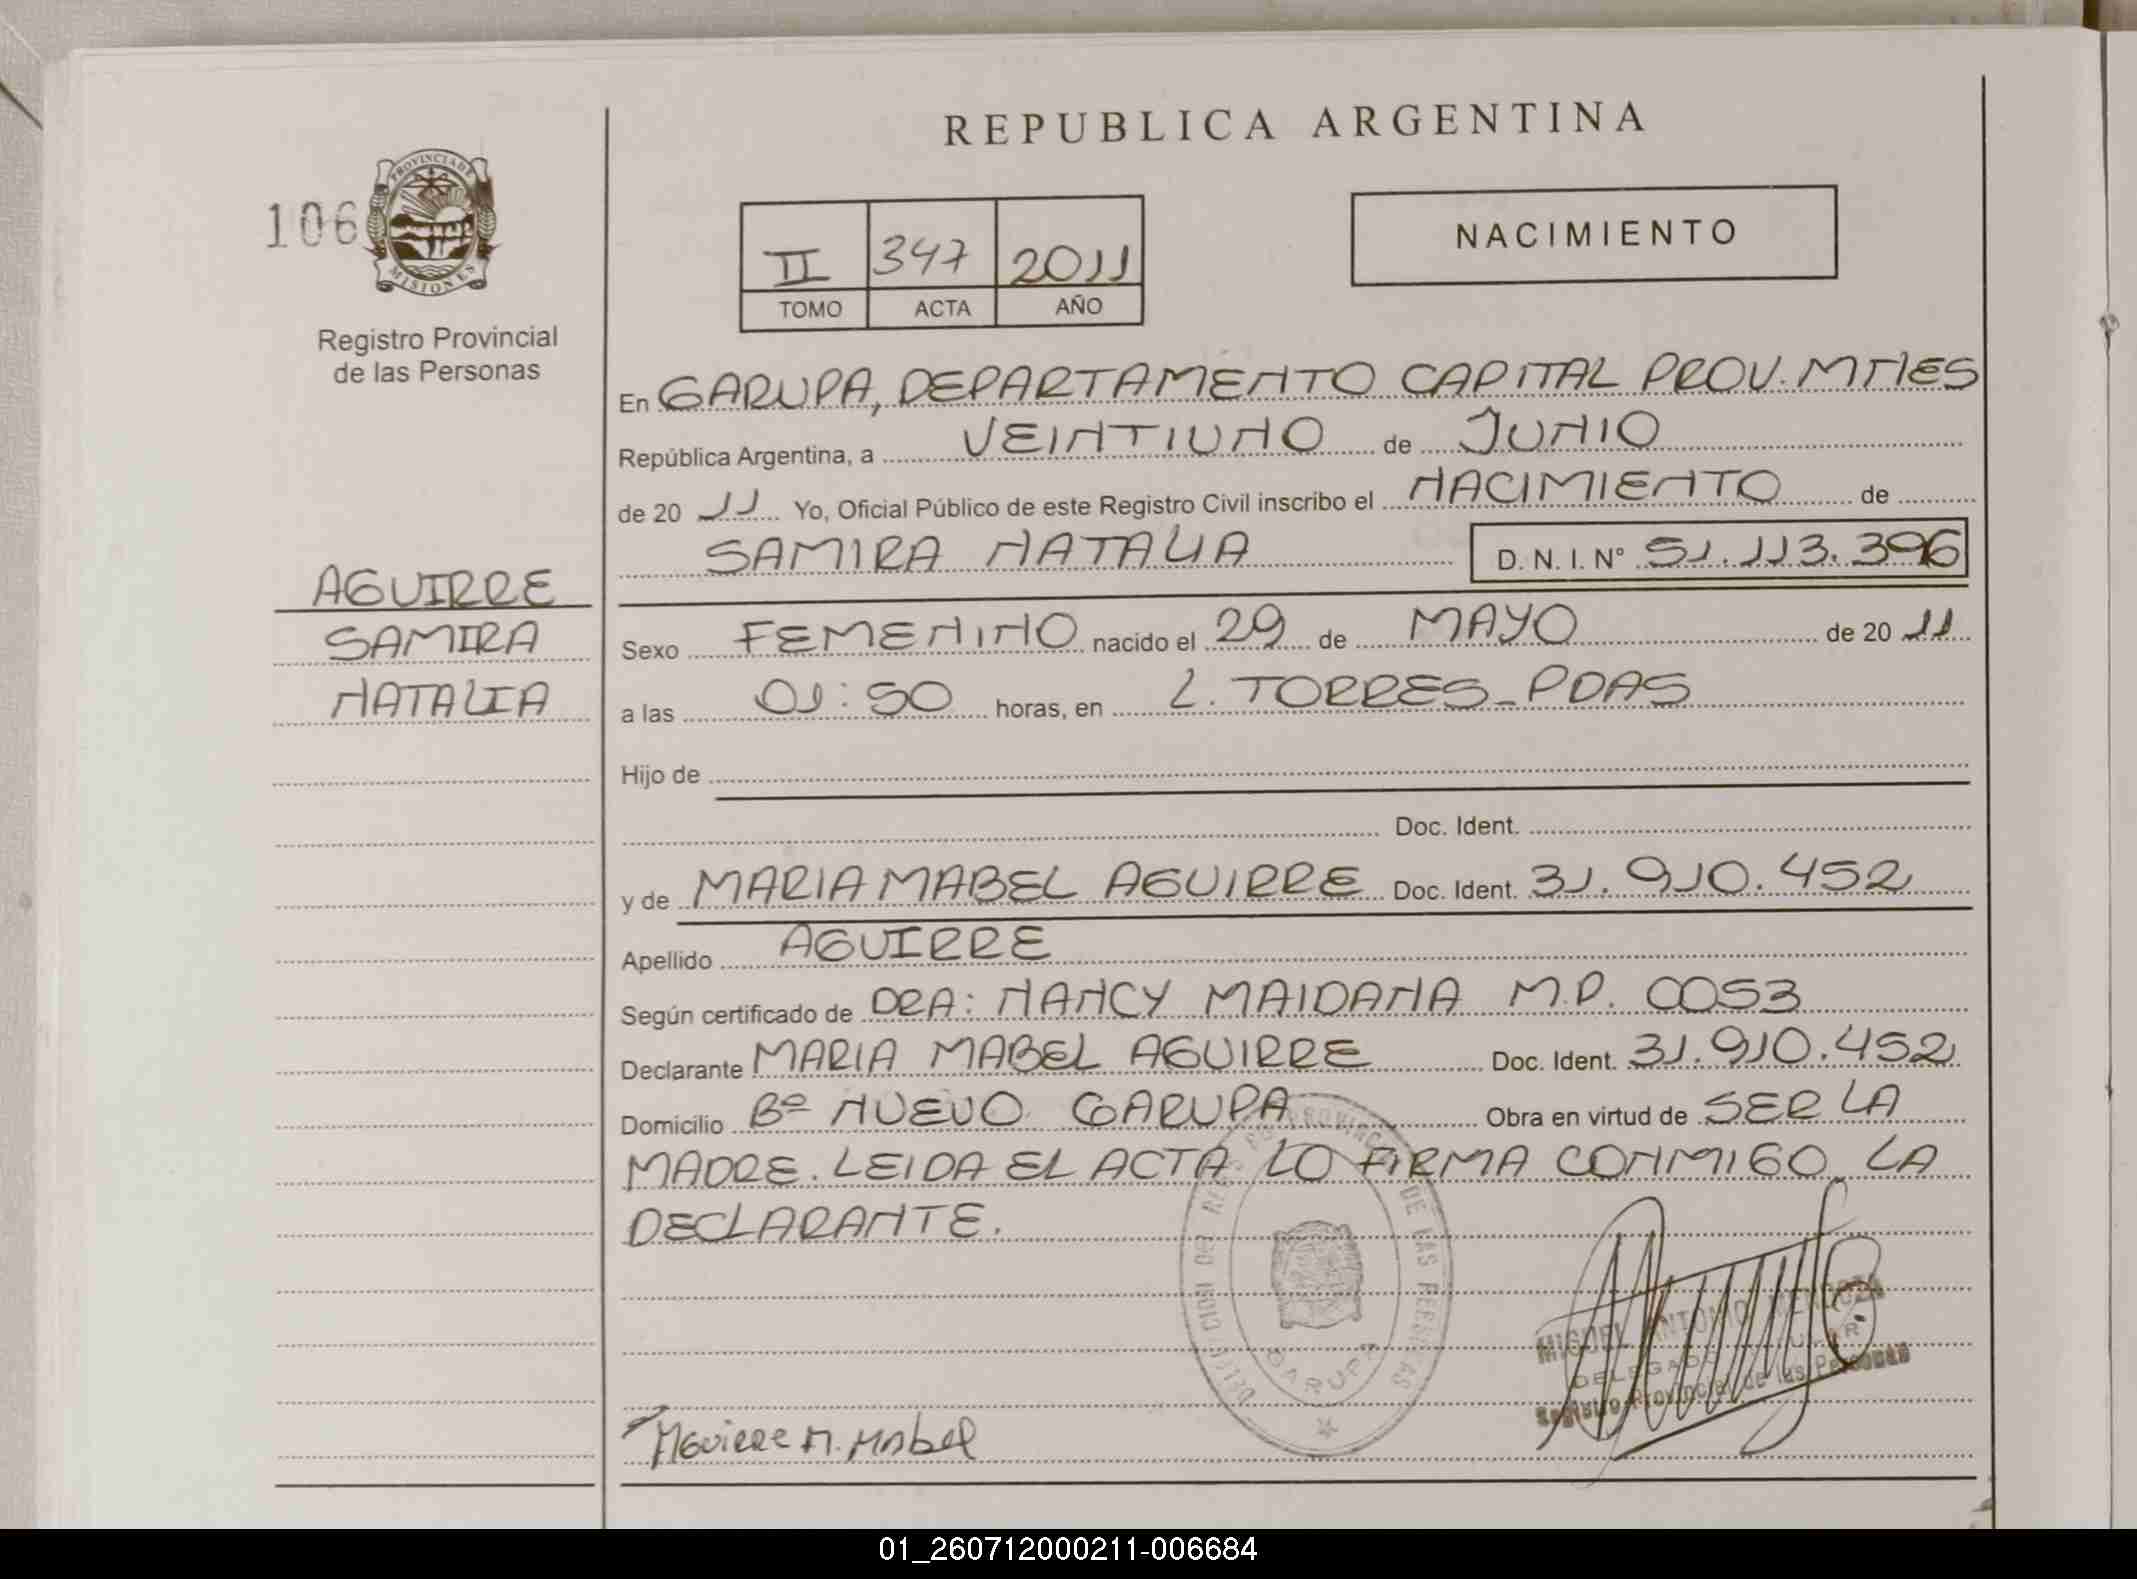 REPUBLICA ARGENTINA
106
PROVINCIA DE
MISIONES
Registro Provincial
de las Personas
II 347 2011
TOMO ACTA AÑO
NACIMIENTO
En GARUPA, DEPARTAMENTO CAPITAL PROV. MNES
República Argentina, a VEINTIUNO de JUNIO
de 20 11 Yo, Oficial Público de este Registro Civil inscribo el NACIMIENTO de
SAMIRA NATALIA D. N. I. Nº 51.113.396
AGUIRRE
SAMIRA
NATALIA
Sexo FEMENINO nacido el 29 de MAYO de 20 11
a las 01:50 horas, en L. TORRES_PDAS
Hijo de
Doc. Ident.
y de MARIA MABEL AGUIRRE Doc. Ident. 31.910.452
Apellido AGUIRRE
Según certificado de DRA: NANCY MAIDANA M.P. 0053
Declarante MARIA MABEL AGUIRRE Doc. Ident. 31.910.452
Domicilio Bº NUEVO GARUPA Obra en virtud de SER LA
MADRE. LEIDA EL ACTA LO FIRMA CONMIGO LA
DECLARANTE.
DE LAS PERSONAS
GARUPA
MIGUEL ANTONIO MENDOZA
DELEGADO TITULAR
Registro Provincial de las Personas
Aguirre M. Mabel
01_260712000211-006684